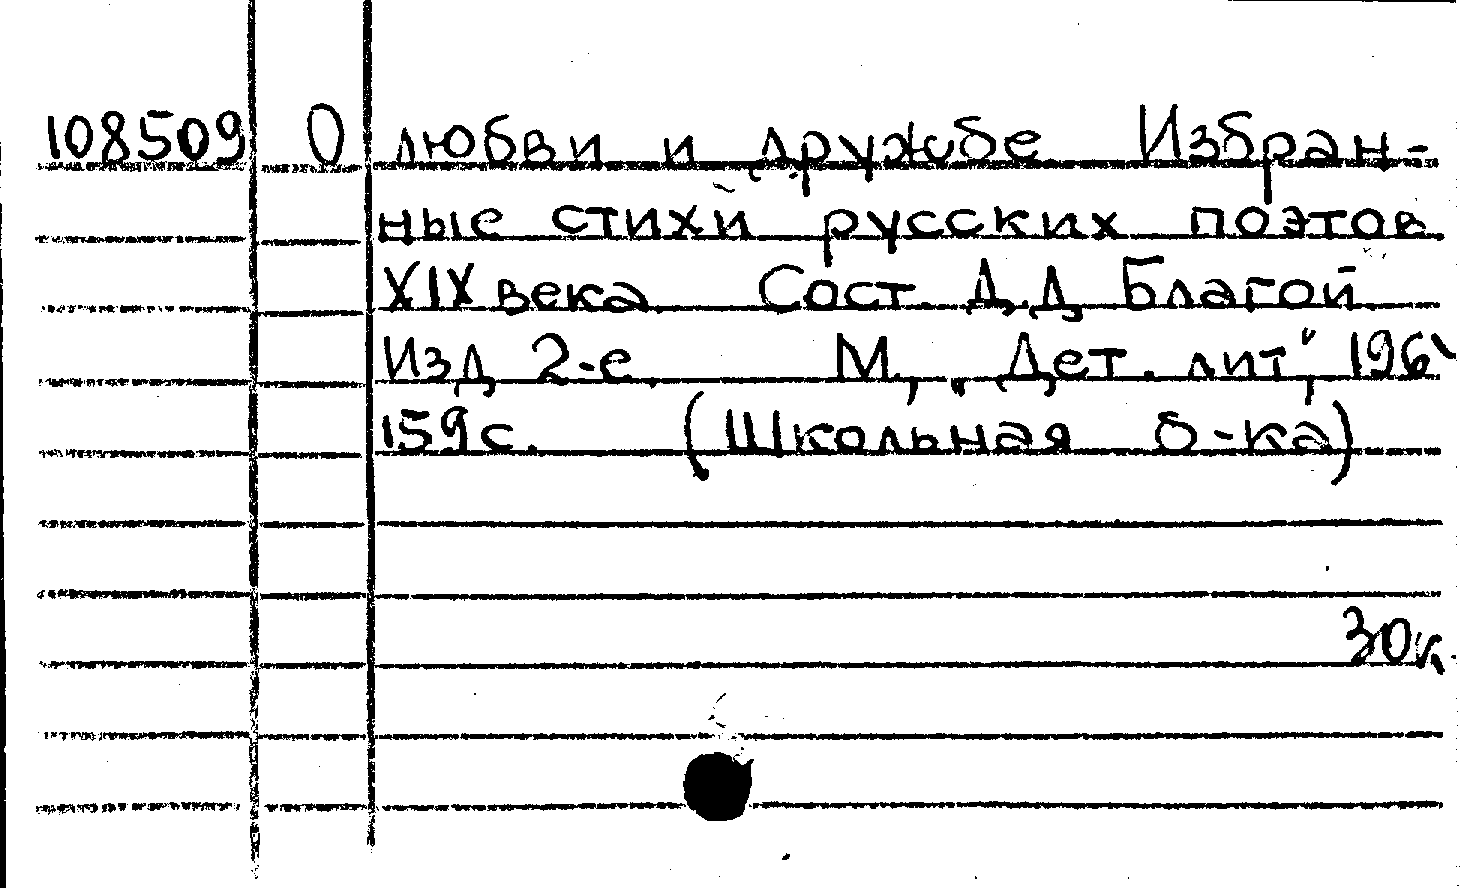 108509 О любви и дружбе Избран-
ные стихи русских поэтов
XIX века. Сост. Д.Д Благой.
Изд 2-е. М., „Дет. лит",
159с. (Школьная б-ка)
30к.